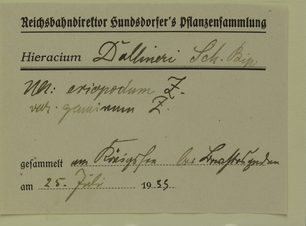 Reichsbahndirektor Hundsdorfer's Pflanzensammlung
Hieracium Dollineri Sch. Bip.
eriopodum Z.
var. Z.
gesammelt am Königssee bei Berchtesgaden
am 25. Juli 1935